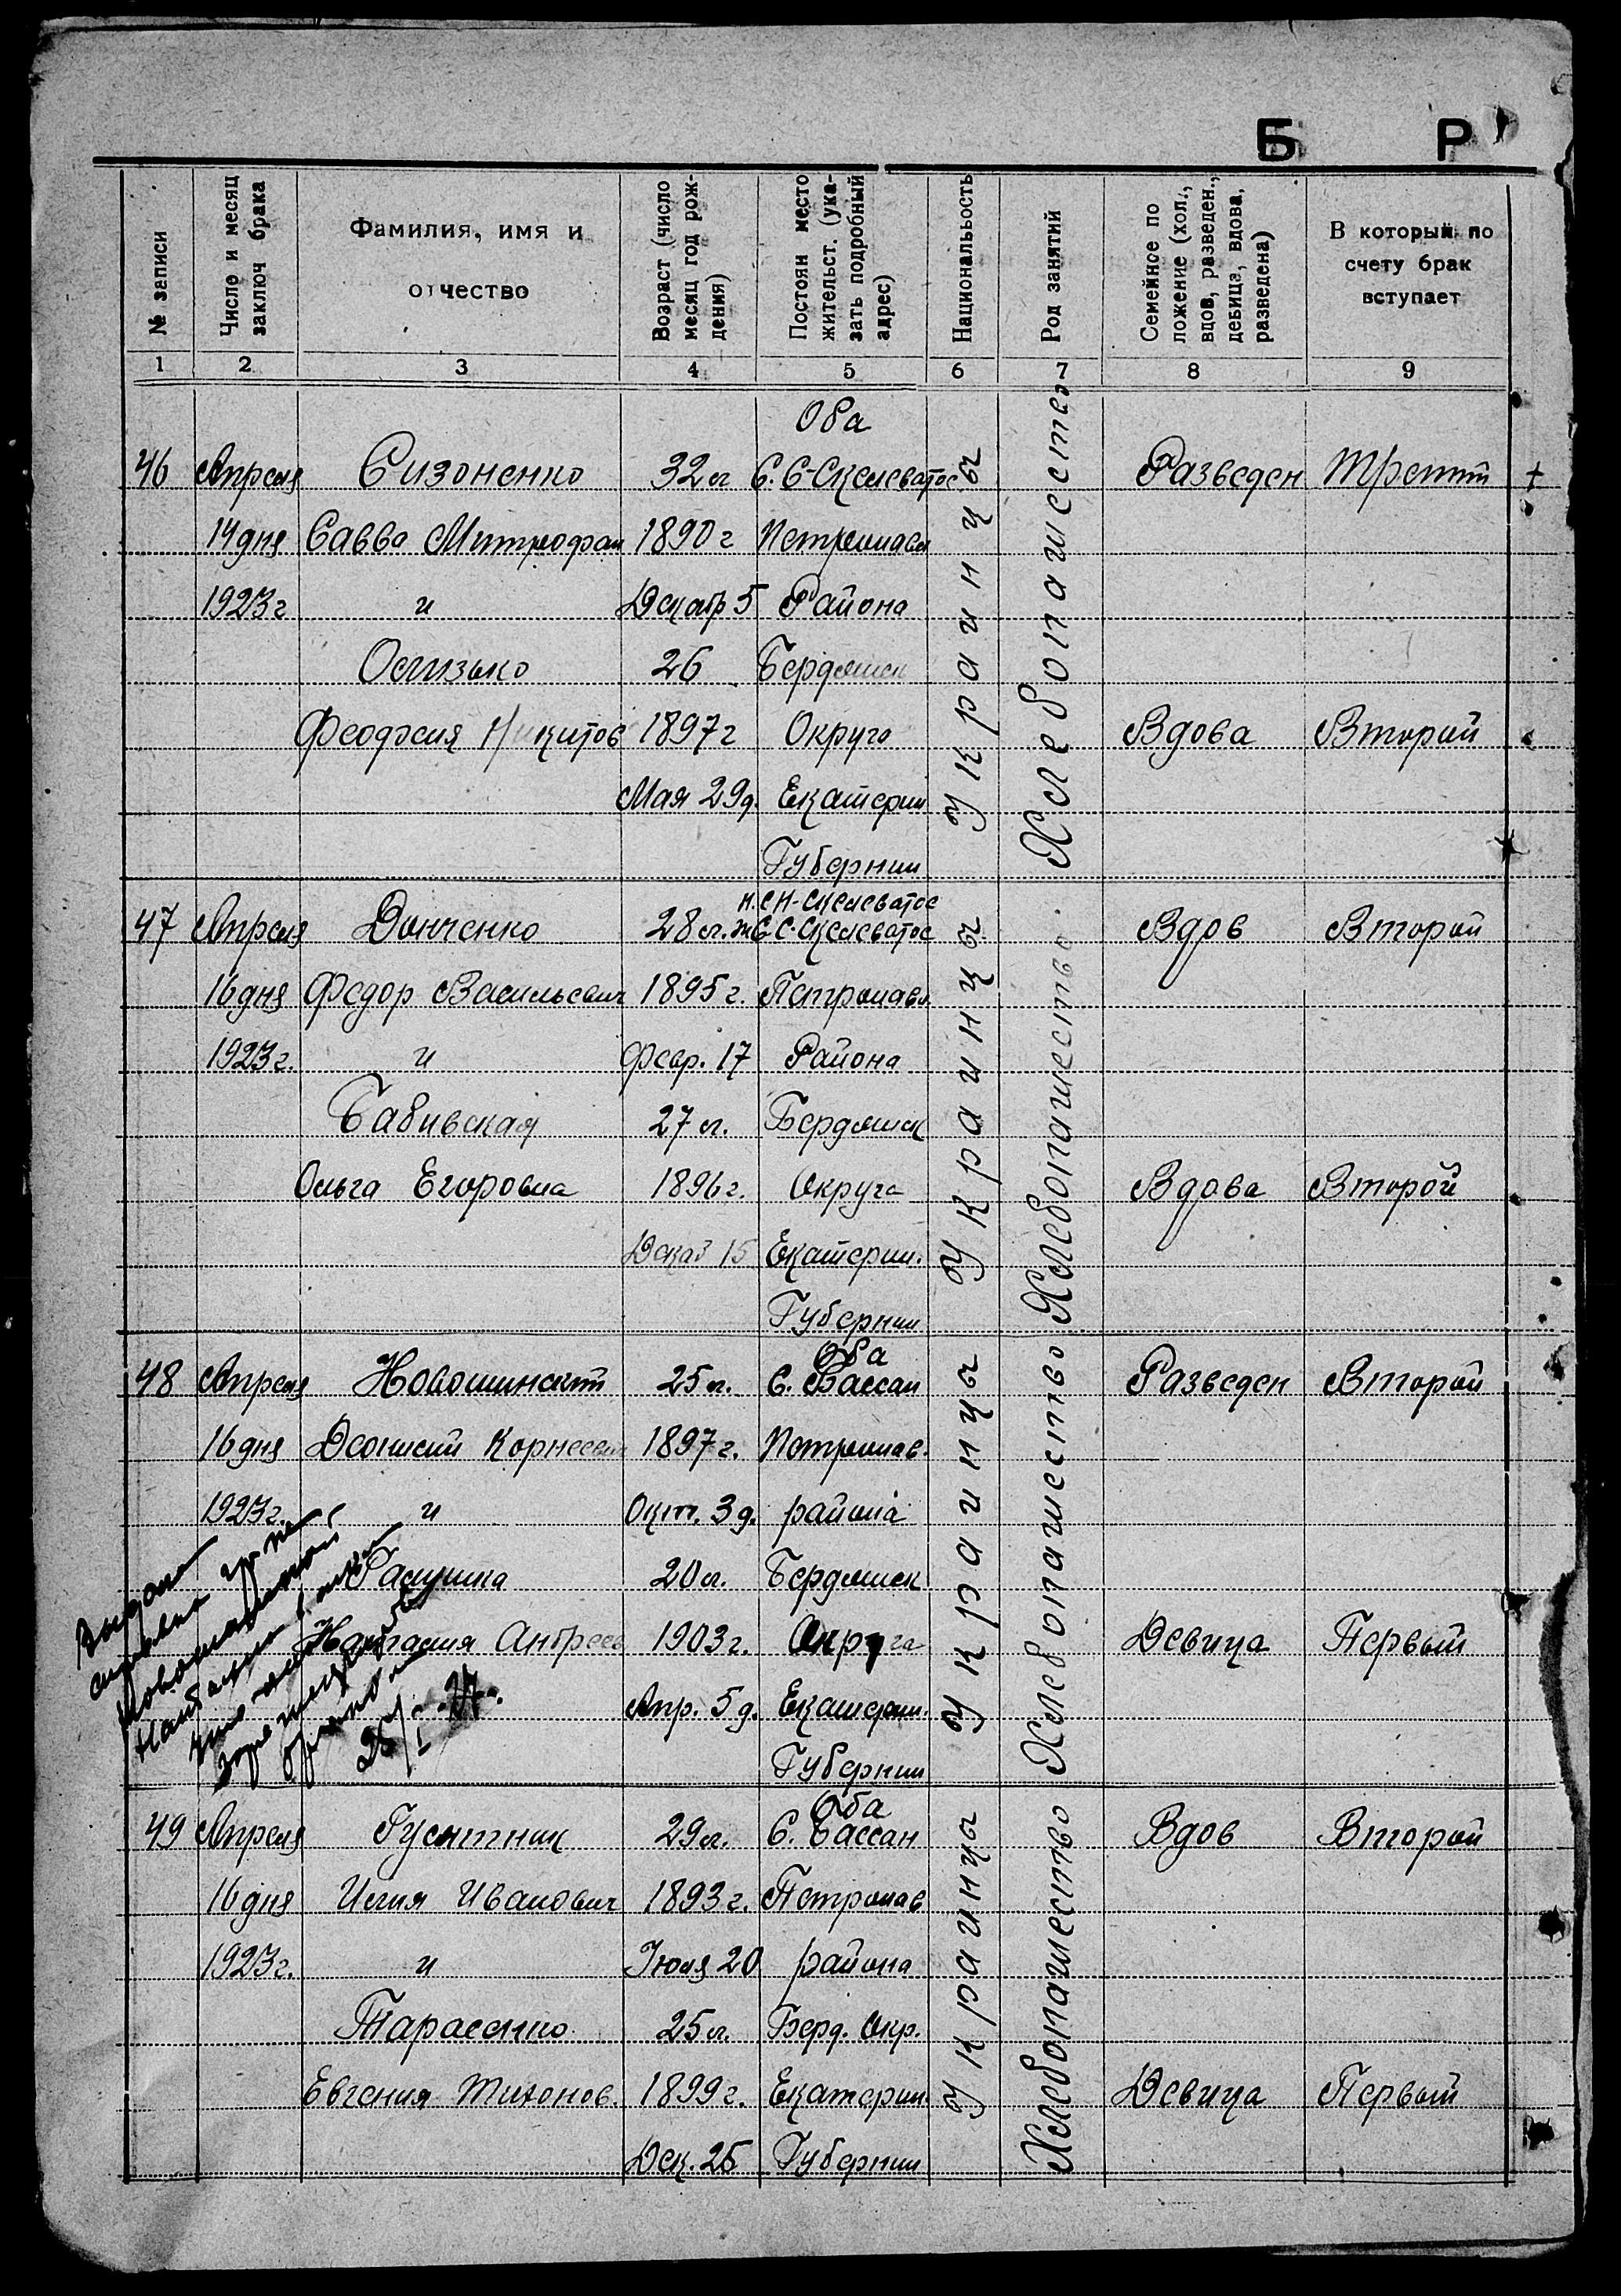 Б Р
№ записи
Число и месяц заключ брака
Фамилия, имя и отчество
Возраст (число месяц год рождения)
Постоян место жительст. (указать подробный адрес)
Национальность
Род занятий
Семейное положение (хол., вдов, разведен., девица, вдова, разведена)
В который по счету брак вступает
1 2 3 4 5 6 7 8 9
Оба
46 Апреля Сизоненко 32 л С. С-Скелеватое Украинцы Хлебопашество Разведен Третий +
14 дня Савва Митрофан 1890 г Петропавл
1923 г и Декабр 5 Района
Осизько 26 Бердянск
Феодосия Никитов 1897 г Округа Вдова Второй
Мая 29 д. Екатерин
Губернии
Н. С Н-Скелеватое
47 Апреля Донченко 28 л. ж С С-Скелеватое Украинцы Хлебопашество Вдов Второй
16 дня Федор Васильевич 1895 г. Петропавл
1923 г. и Февр. 17 Района
Бабивская 27 л. Бердянск
Ольга Егоровна 1896 г. Округа Вдова Второй
Декаб 15 Екатерин.
Губернии
Оба
48 Апреля 25 л. С. Бассан Украинцы Хлебопашество Разведен Второй
16 дня Деонисий Корнеевич 1897 г. Петропав.
1923 г. и Окт. 3 д. района
20 л. Бердянск
Андреев 1903 г. Округа Девица Первый
Апр. 5 д. Екатерин.
Губернии
Выдана
26/I-24.
Оба
49 Апреля 29 л. С. Бассан Украинцы Хлебопашество Вдов Второй
16 дня Илия Иванович 1893 г. Петропав
1923 г. и Июля 20 района
Тарасенко 25 л. Берд. Окр.
Евгения Тихонов. 1899 г. Екатерин. Девица Первый
Дек. 25 Губернии